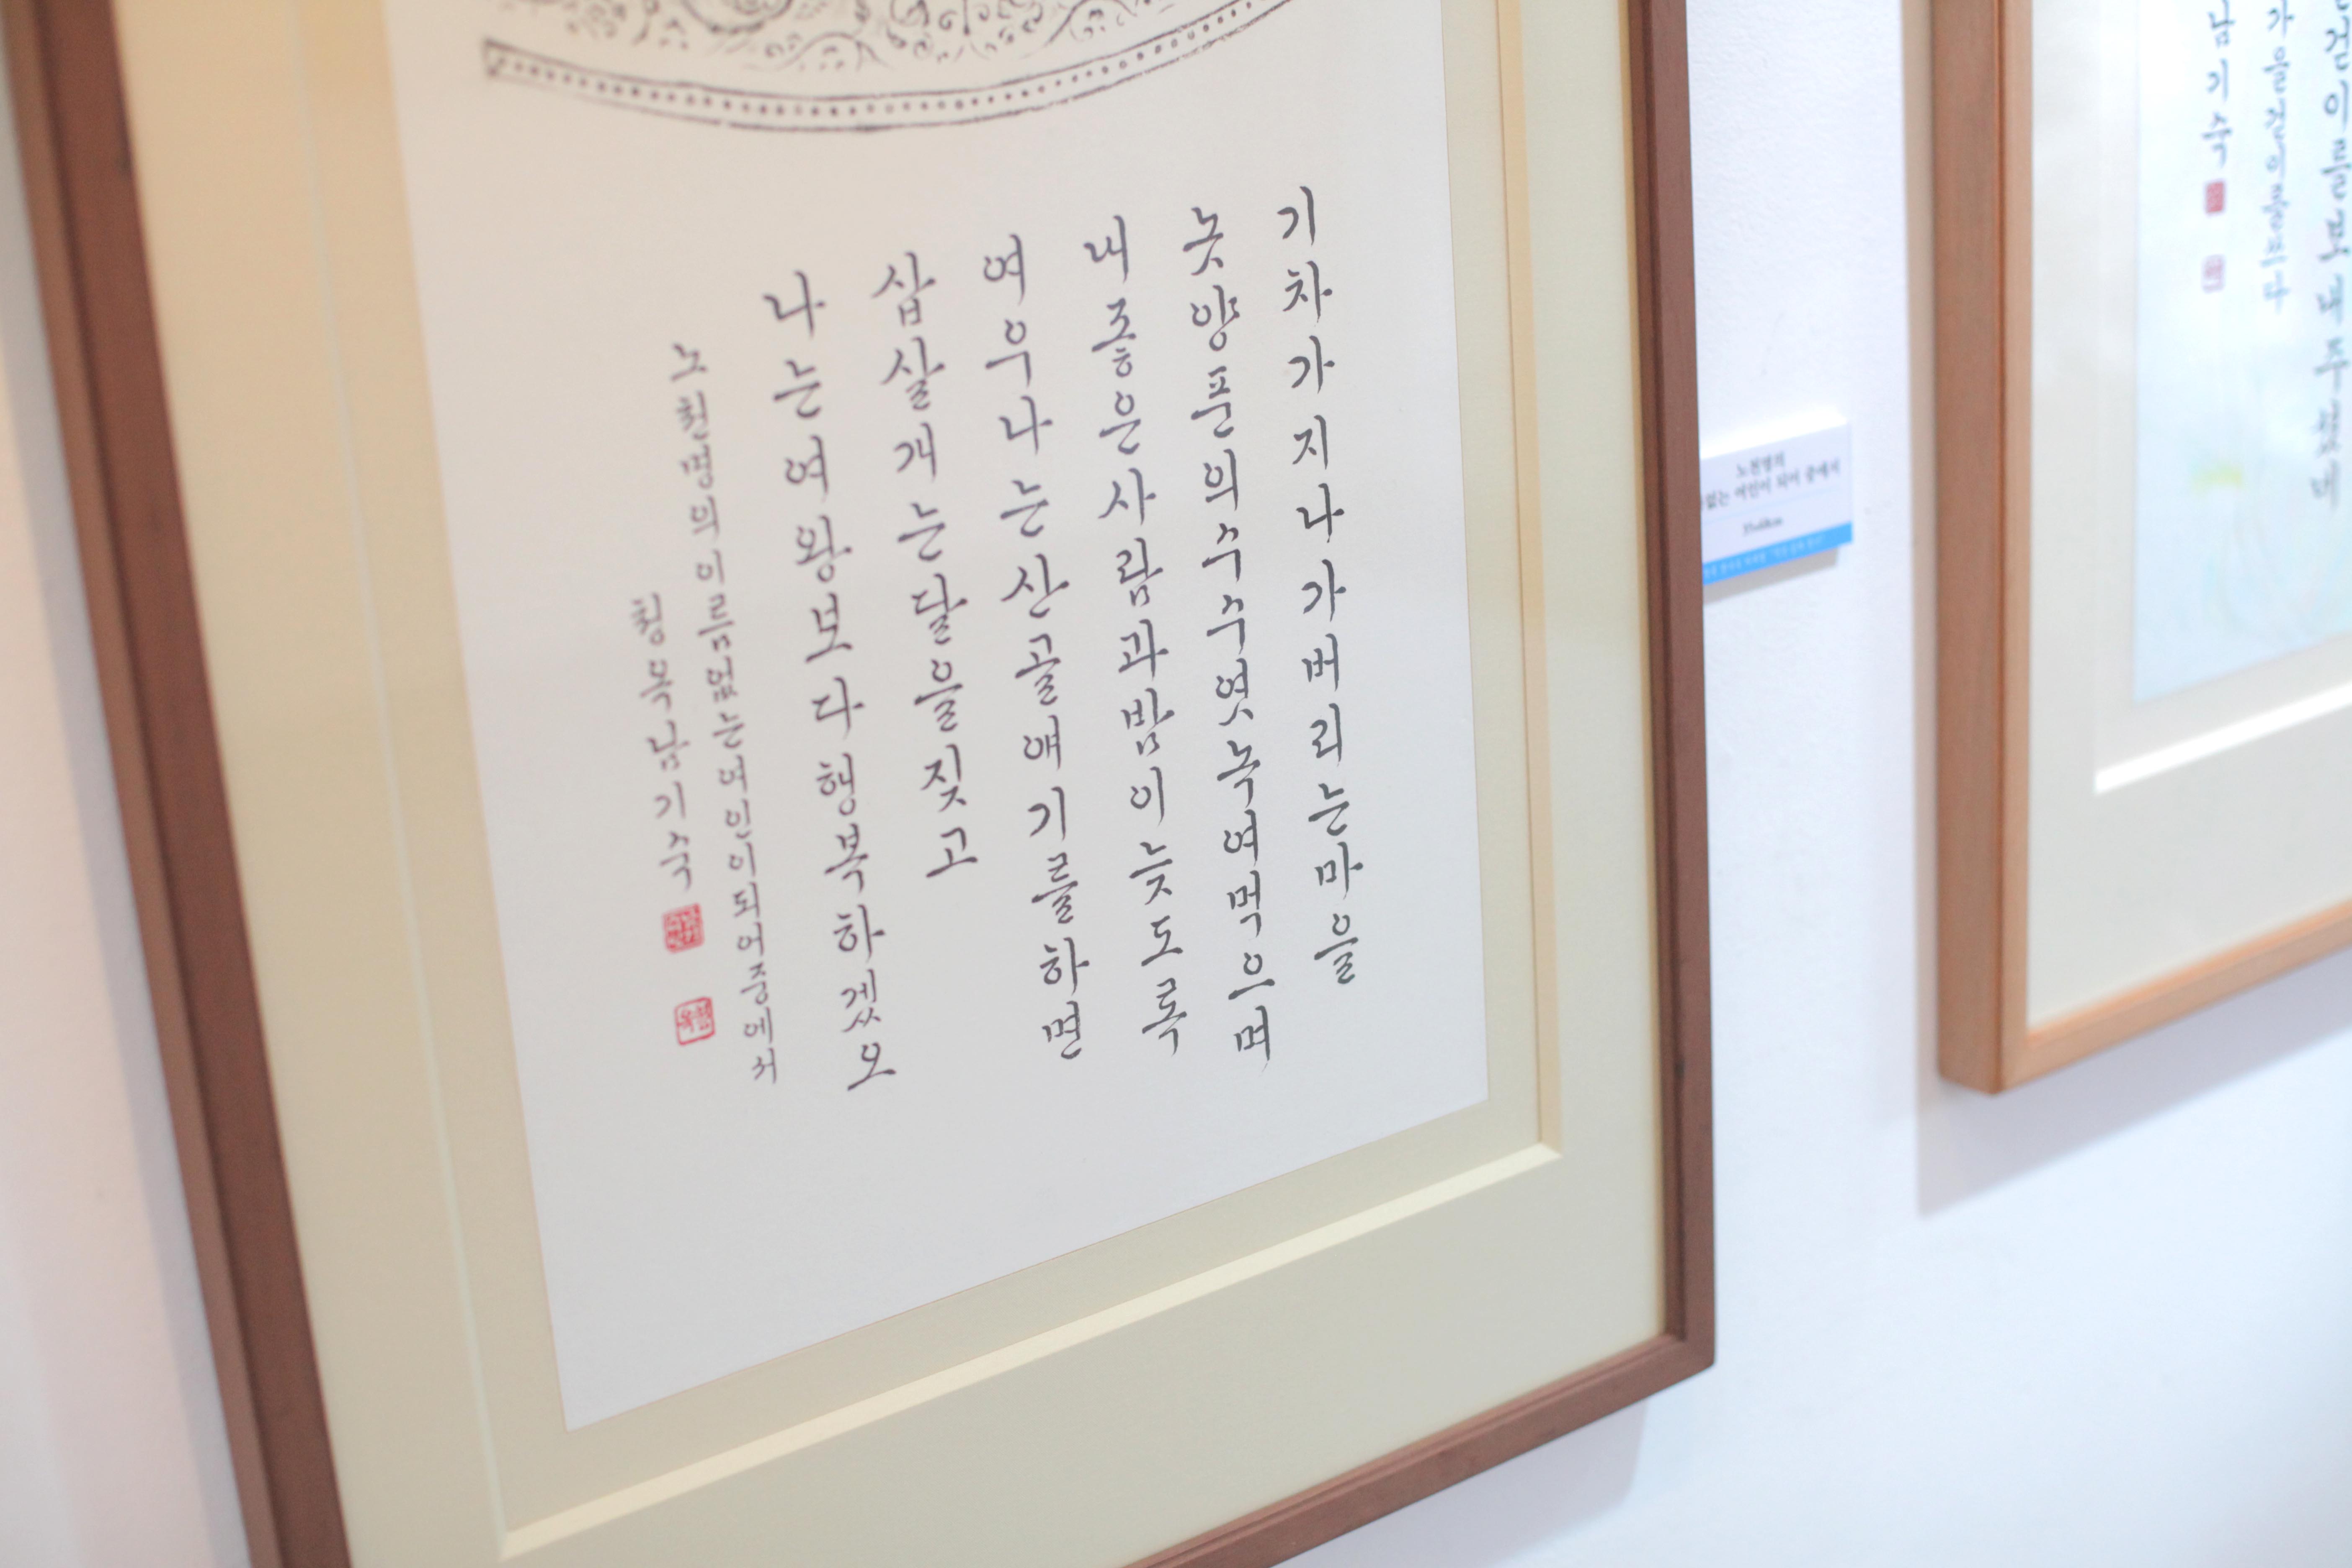 기차가지나가버리는마을
놋양푼의수수엿녹여먹으며
내좋은사람과밤이늦도록
여우나는산골얘기를하면
삽살개는달을짖고
나는여왕보다행복하겠오
노천명의이름없는여인이되어중에서
남기숙
노천명의
없는 여인이 되어 중에서
걸이를보내주셨네
가을걸이를쓰다
남기숙